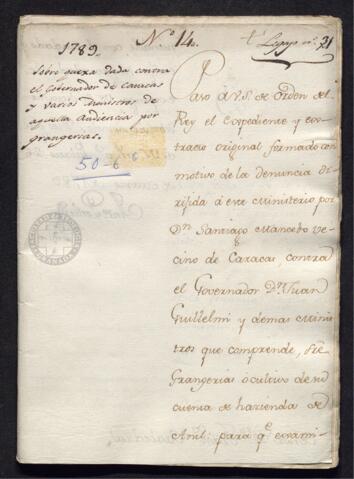 1789.
Nº 14.
Legajo nº 31
Sobre quexa dada contra
el Governador de Caracas
y varios Ministros de
aquella Audiencia por
grangerias.
50-6-6
Paso á V.S. de Orden del
Rey el Expediente y ex-
tracto original formado con
motivo de la denuncia di-
rijida á este Ministerio por
Dn Santiago Mancebo ve-
cino de Caracas, contra
el Governador Dn Juan
Guillelmi y demas Minis-
tros que comprende, sre
Grangerias ó cultivo de su
cuenta de hacienda de
Añil para qe exami-